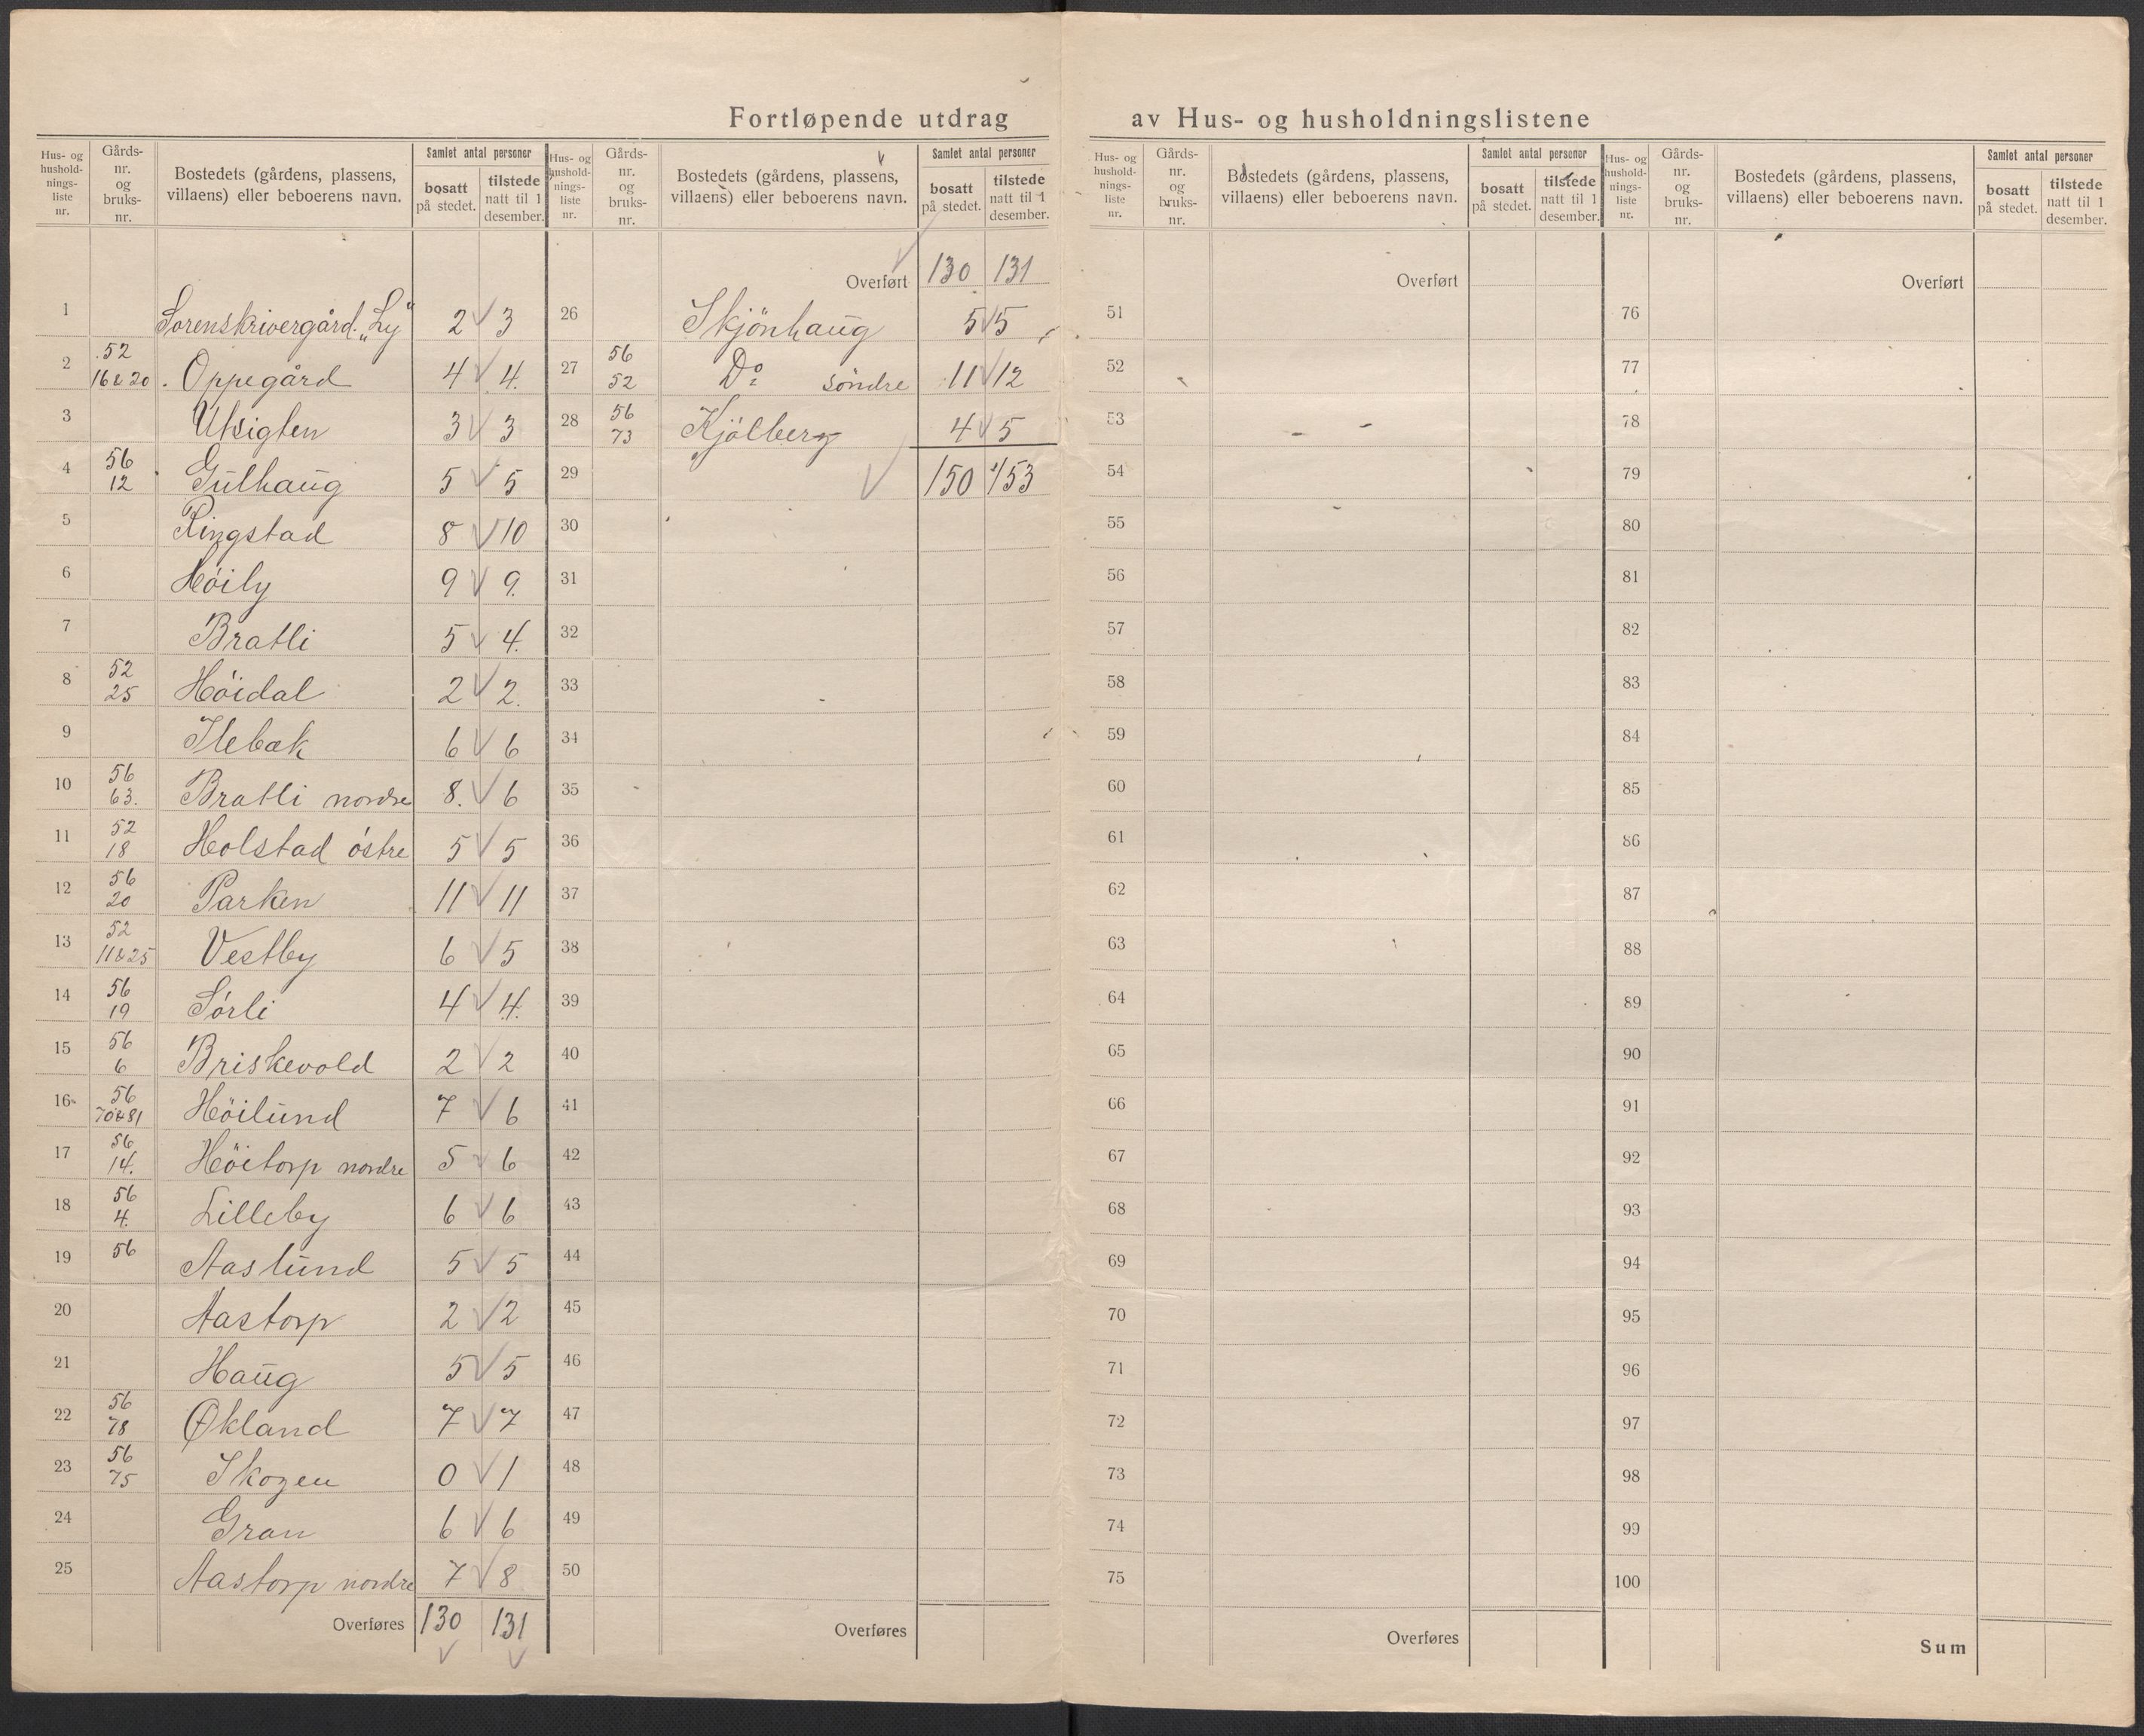 Fortløpende utdrag av Hus- og husholdningslistene
Hus- og hushold- nings- liste nr.
Gårds- nr. og bruks- nr.
Bostedets (gårdens, plassens, villaens) eller beboerens navn.
Samlet antal personer
bosatt på stedet.
tilstede natt til 1 desember.
1 Sorenskrivergård. „Ly" 2 3
2 52 16&20 Oppegård 4 4
3 Utsigten 3 3
4 56 12 Gulhaug 5 5
5 Ringstad 8 10
6 Höily 9 9
7 Bratli 5 4
8 52 25 Höidal 2 2
9 Ilebæk 6 6
10 56 63 Bratli nordre 8 6
11 52 18 Holstad östre 5 5
12 56 20 Parken 11 11
13 52 11&25 Vestby 6 5
14 56 19 Sörli 4 4
15 56 6 Briskevold 2 2
16 56 70&81 Höilund 7 6
17 56 14 Höitorp nordre 5 6
18 56 4 Lilleby 6 6
19 56 Aaslund 5 5
20 Aastorp 2 2
21 Haug 5 5
22 56 78 Økland 7 7
23 56 75 Skogen 0 1
24 Gran 6 6
25 Aastorp nordre 7 8
Overføres 130 131
Hus- og hushold- nings- liste nr.
Gårds- nr. og bruks- nr.
Bostedets (gårdens, plassens, villaens) eller beboerens navn.
Samlet antal personer
bosatt på stedet.
tilstede natt til 1 desember.
Overført 130 131
26 Skjönhaug 5 5
27 56 52 Do söndre 11 12
28 56 73 Kjölberg 4 5
29 150 153
30
31
32
33
34
35
36
37
38
39
40
41
42
43
44
45
46
47
48
49
50
Overføres
Hus- og hushold- nings- liste nr.
Gårds- nr. og bruks- nr.
Bostedets (gårdens, plassens, villaens) eller beboerens navn.
Samlet antal personer
bosatt på stedet.
tilstede natt til 1 desember.
Overført
51
52
53
54
55
56
57
58
59
60
61
62
63
64
65
66
67
68
69
70
71
72
73
74
75
Overføres
Hus- og hushold- nings- liste nr.
Gårds- nr. og bruks- nr.
Bostedets (gårdens, plassens, villaens) eller beboerens navn.
Samlet antal personer
bosatt på stedet.
tilstede natt til 1 desember.
Overført
76
77
78
79
80
81
82
83
84
85
86
87
88
89
90
91
92
93
94
95
96
97
98
99
100
Sum